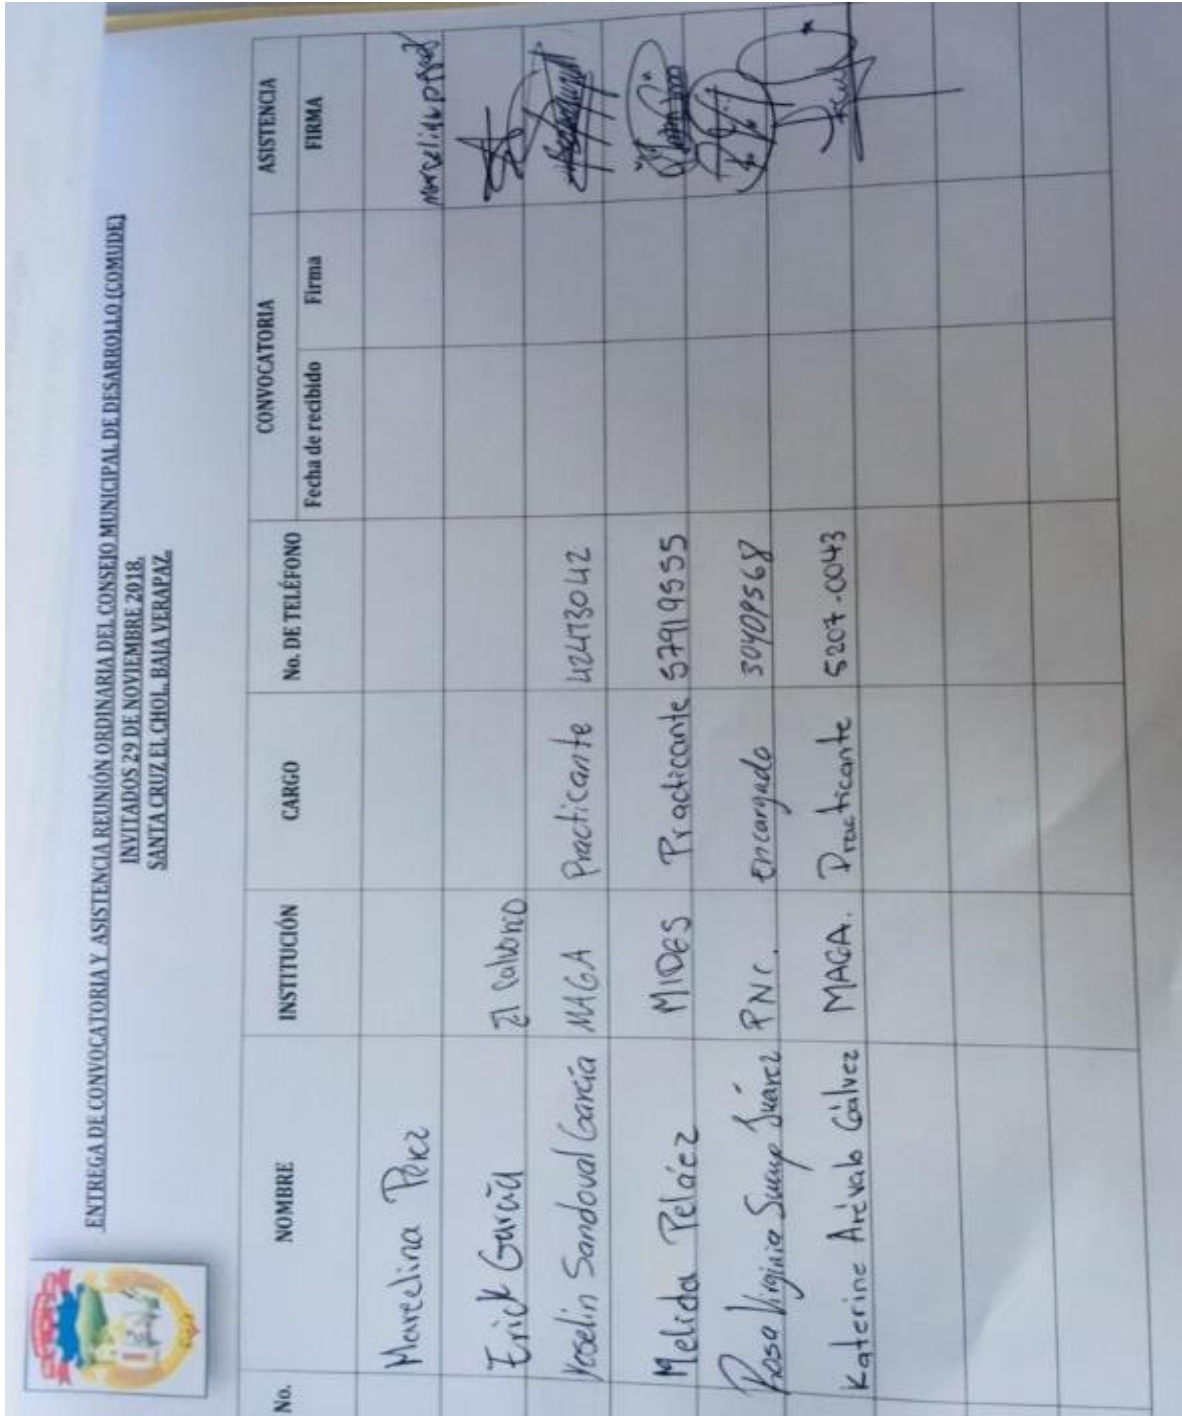 ENTREGA DE CONVOCATORIA Y ASISTENCIA REUNIÓN ORDINARIA DEL CONSEJO MUNICIPAL DE DESARROLLO (COMUDE)
INVITADOS 29 DE NOVIEMBRE 2018.
SANTA CRUZ EL CHOL, BAJA VERAPAZ.
No. NOMBRE INSTITUCIÓN CARGO No. DE TELÉFONO CONVOCATORIA ASISTENCIA
Fecha de recibido Firma FIRMA
Marcelina Perez
Erick García El
Yoselin Sandoval García MAGA Practicante 42473042
Melida Peláez MIDES Practicante 57919555
Rosa Virginia Suárez PNC. encargado 30409568
Katerine Arévalo Gálvez MAGA. Practicante 5207-0043